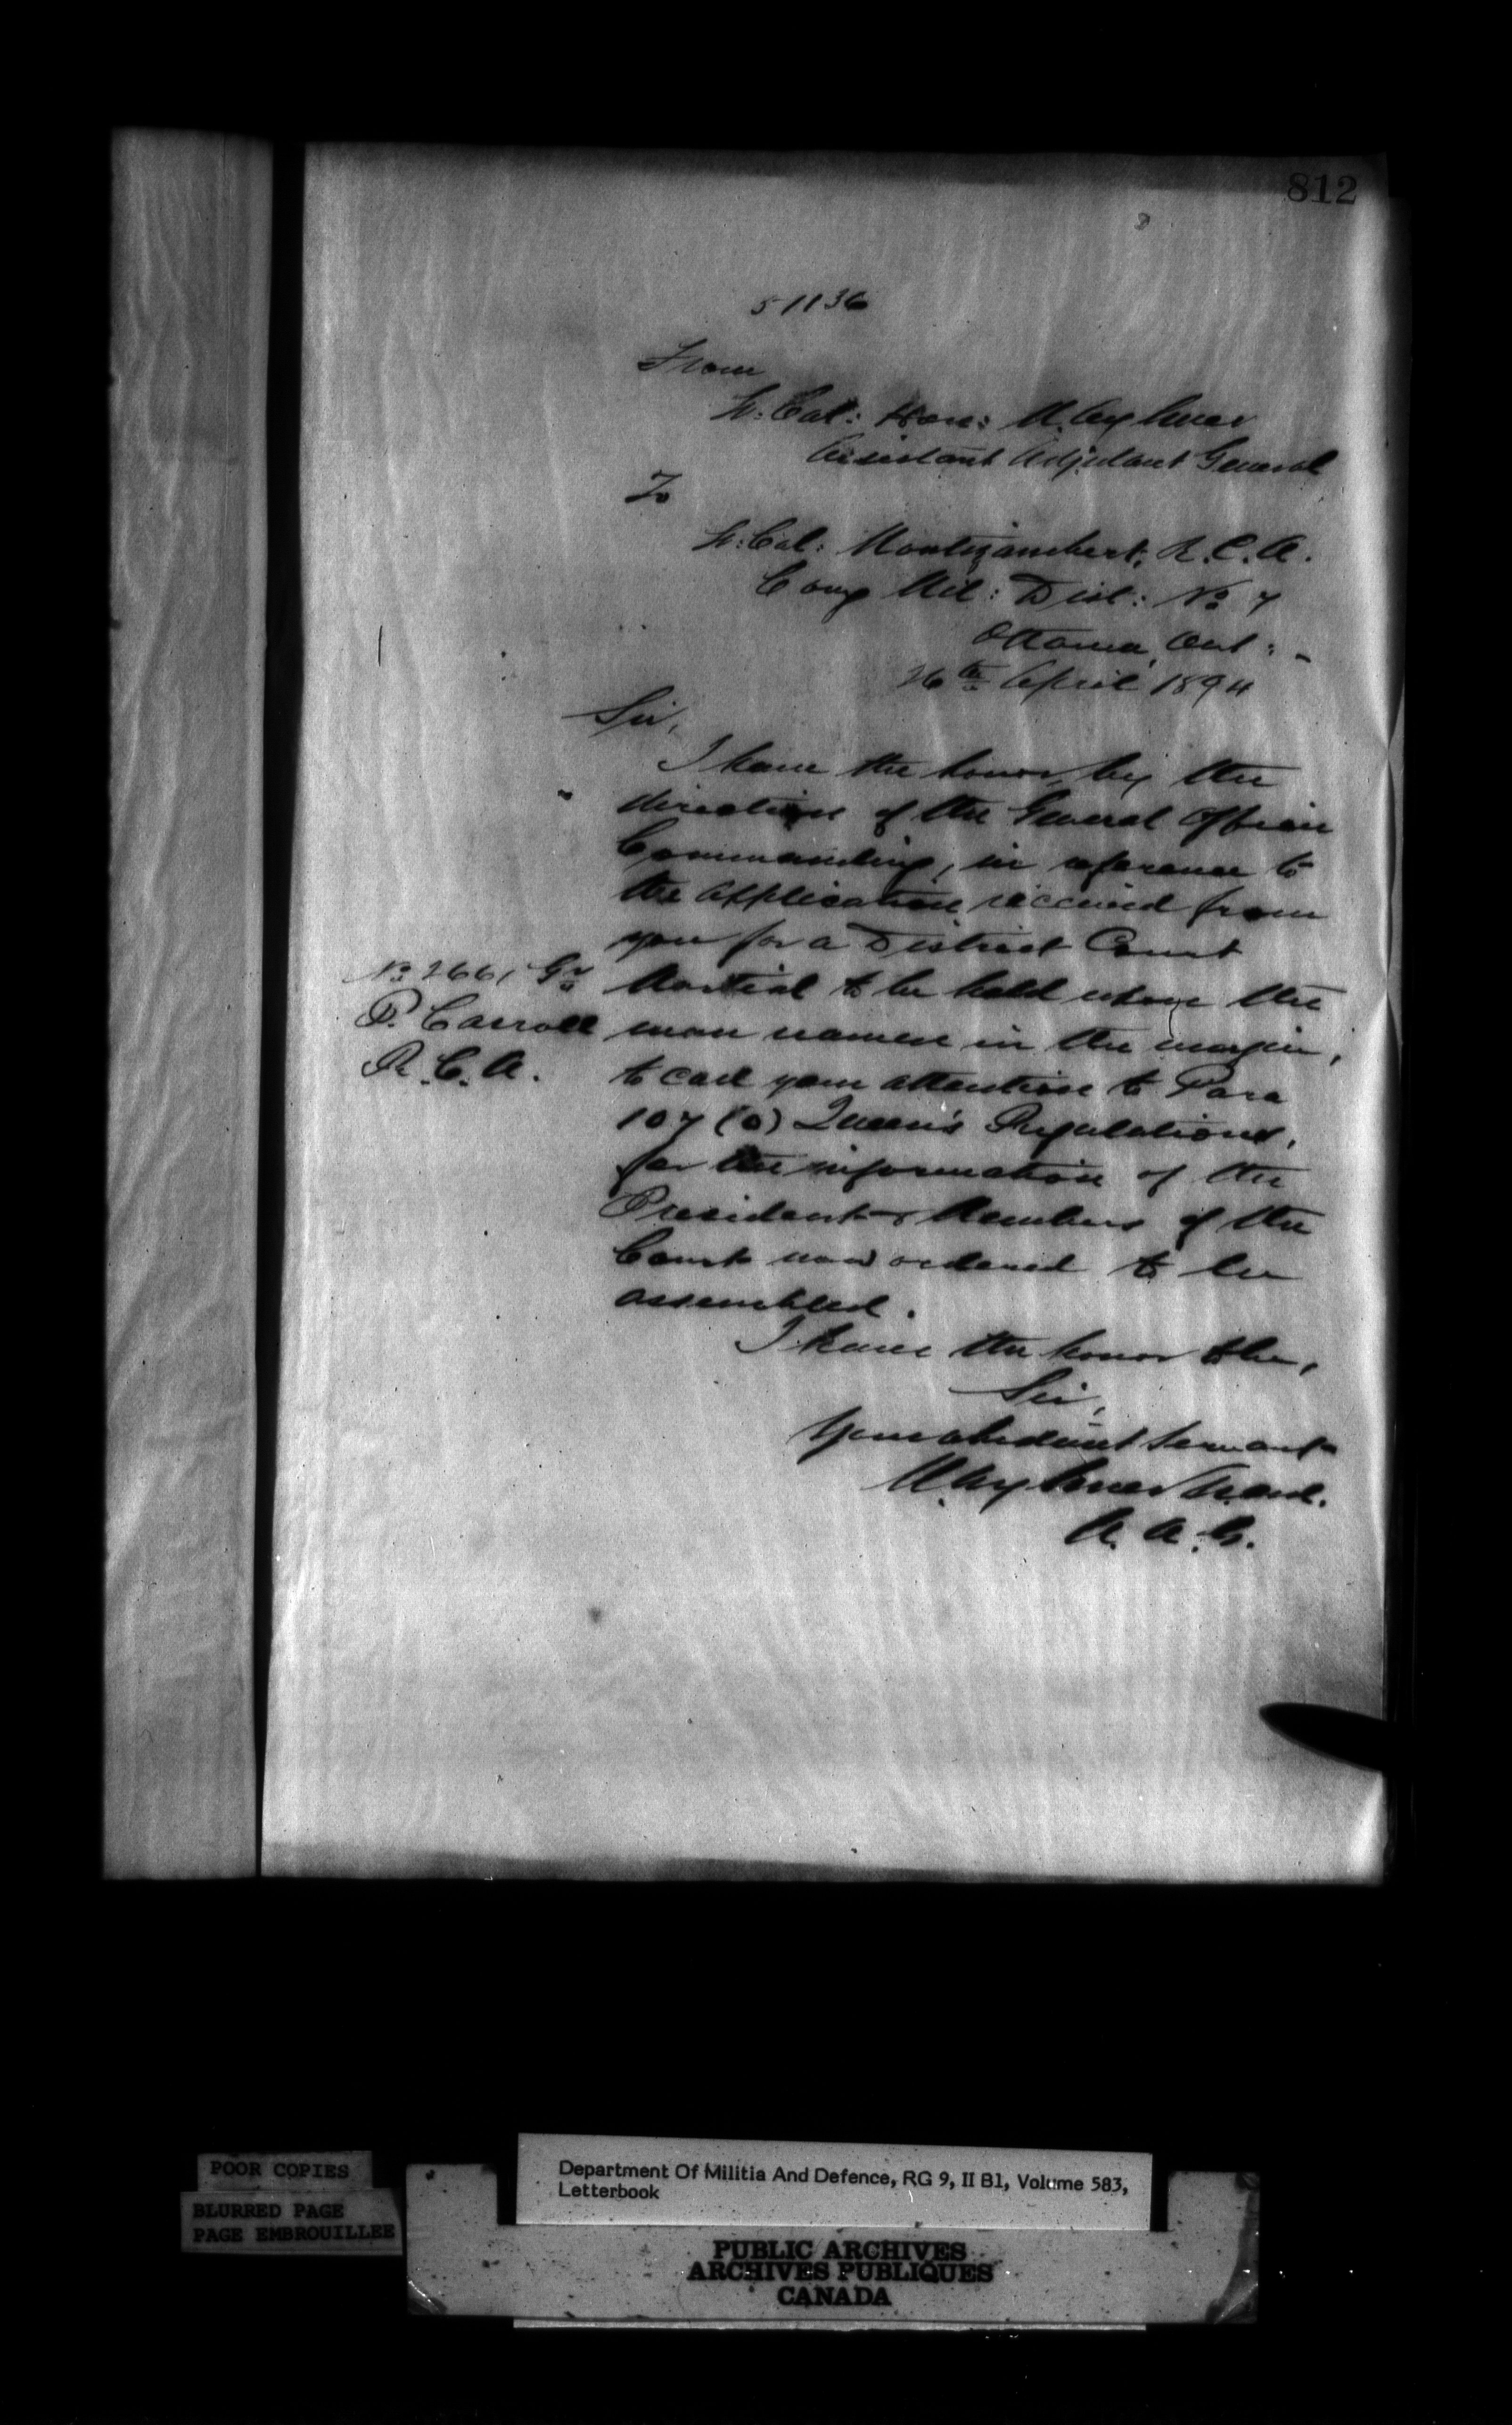 812
51136
From
Lt: Col: Hon: M. Aylmer
Assistant Adjutant General
To
Lt: Col: Montizambert, R.C.A.
Comg Mil: Dist: No 7
Ottawa, Ont:-
26th April 1894
Sir,
I have the honor, by the
direction of the General Officer
Commanding, in reference to
the application received from
you for a District Court
Martial to be held upon the
man named in the margin,
No 2661 Gr
P. Carroll
R.C.A.
to call your attention to Para
107 (a) Queen's Regulations,
for the information of the
President & Members of the
Court now ordered to be
assembled.
I have the honor to be,
Sir,
Your obedient Servant
M. Aylmer Lt. Col.
A.A.G.
POOR COPIES
BLURRED PAGE
PAGE EMBROUILLEE
Department Of Militia And Defence, RG 9, II B1, Volume 583,
Letterbook
PUBLIC ARCHIVES
ARCHIVES PUBLIQUES
CANADA